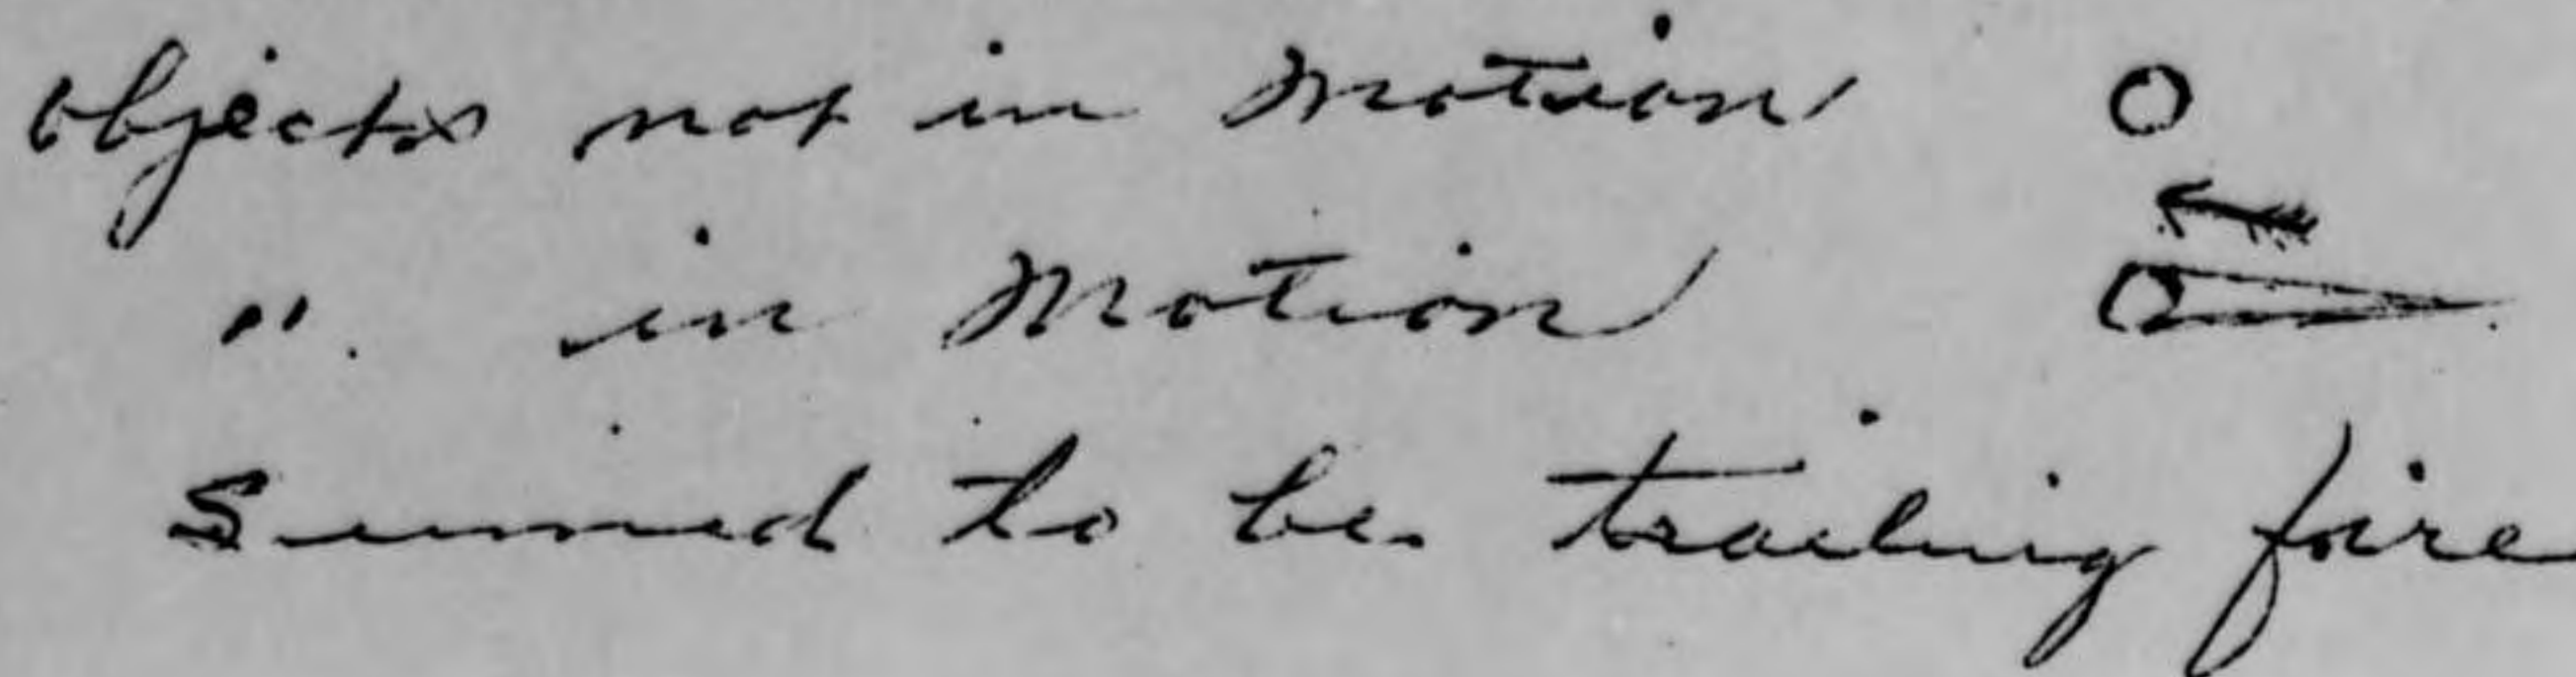 Objects not in Motion
" in Motion
Seemed to be trailing fire